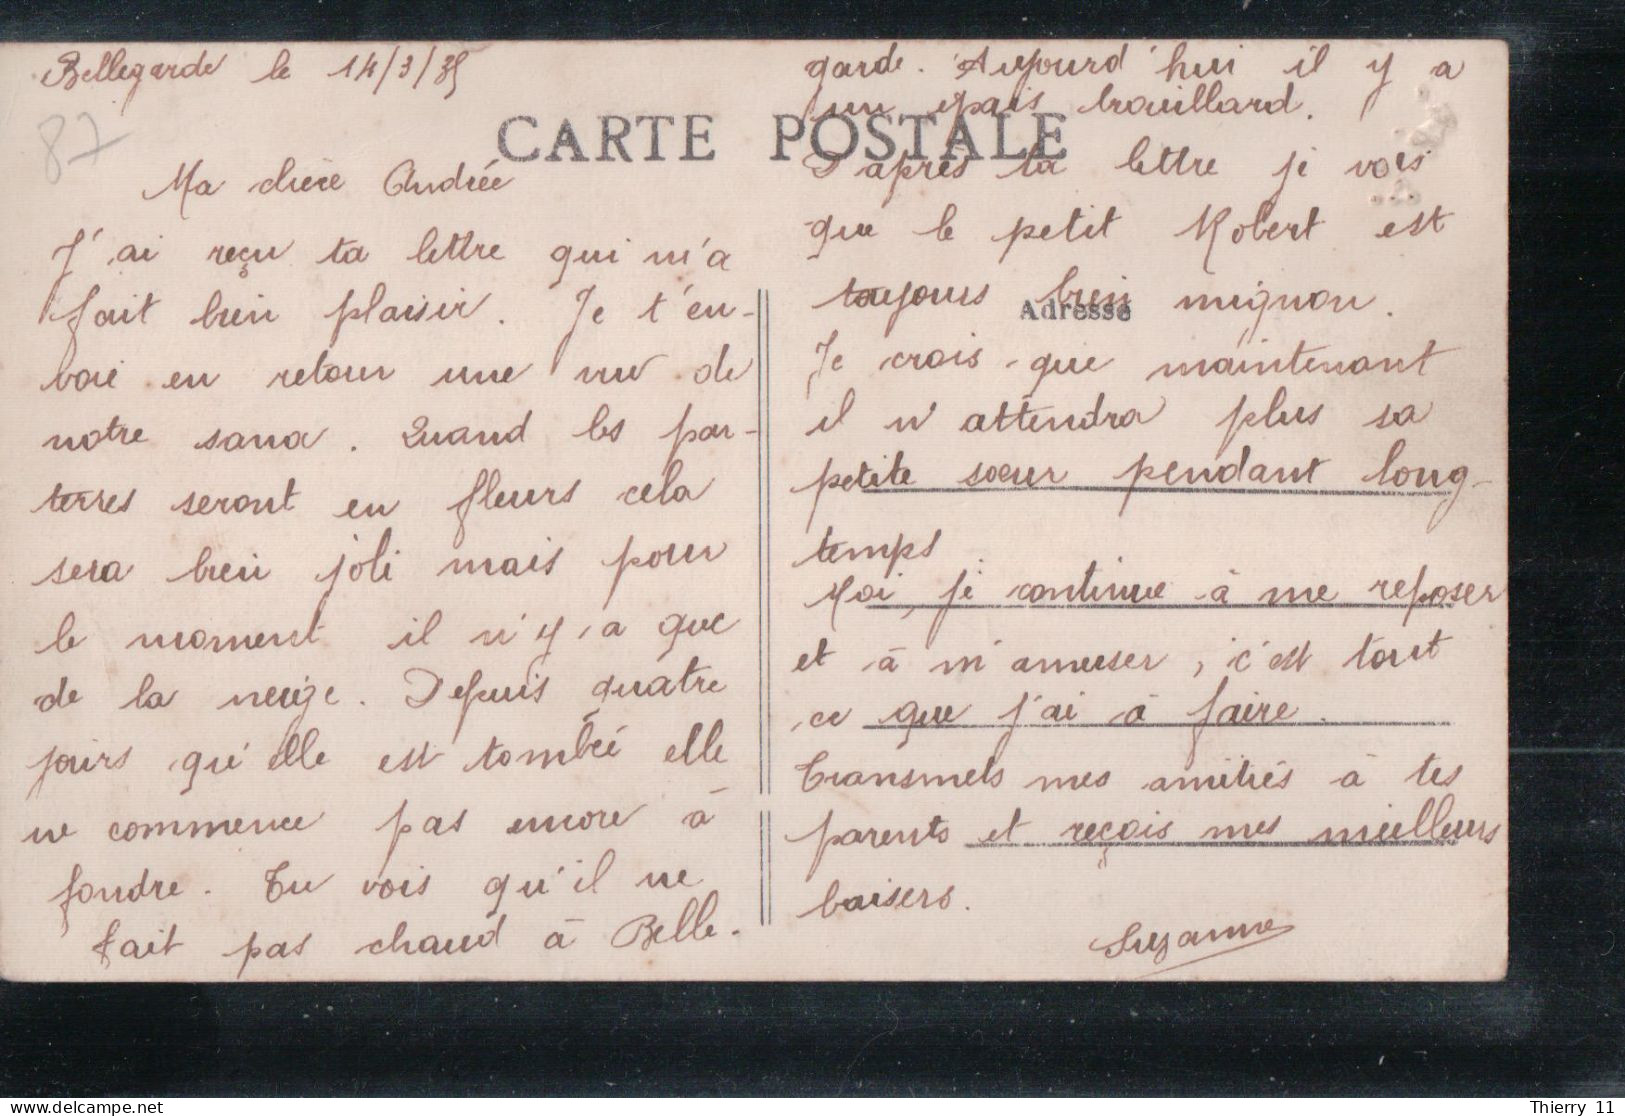 Bellegarde le 14/3/35
87
CARTE POSTALE
Ma chère Andrée
J'ai reçu ta lettre qui m'a
fait bien plaisir. Je t'en-
voie en retour une vue de
notre sana. Quand les par-
terres seront en fleurs cela
sera bien joli mais pour
le moment il n'y a que
de la neige. Depuis quatre
jours qu'elle est tombée elle
ne commence pas encore à
fondre. Tu vois qu'il ne
fait pas chaud à Belle-
garde. Aujourd'hui il y a
un épais brouillard.
D'après ta lettre je vois
que le petit Robert est
toujours bien mignon.
Adresse
Je crois que maintenant
il n'attendra plus sa
petite sœur pendant long-
temps
Moi, je continue à me reposer
et à m'amuser, c'est tout
ce que j'ai à faire.
Transmets mes amitiés à tes
parents et reçois mes meilleurs
baisers.
Suzanne
Thierry 11